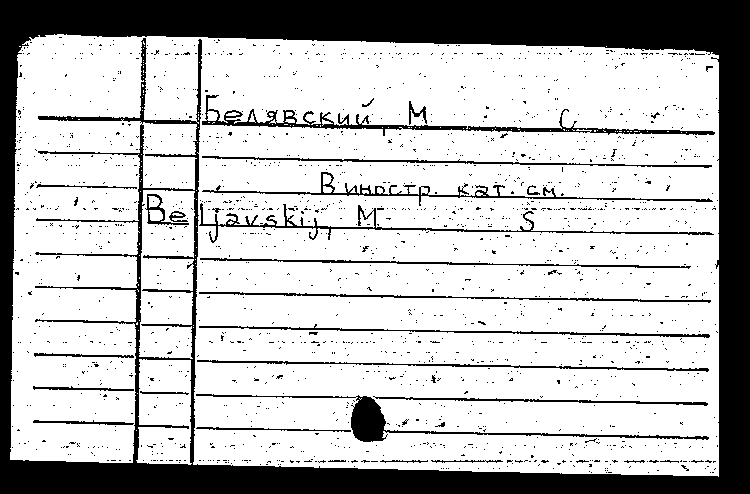 Белявский, М С
В иностр. кат. см.
Beljavskij, M S